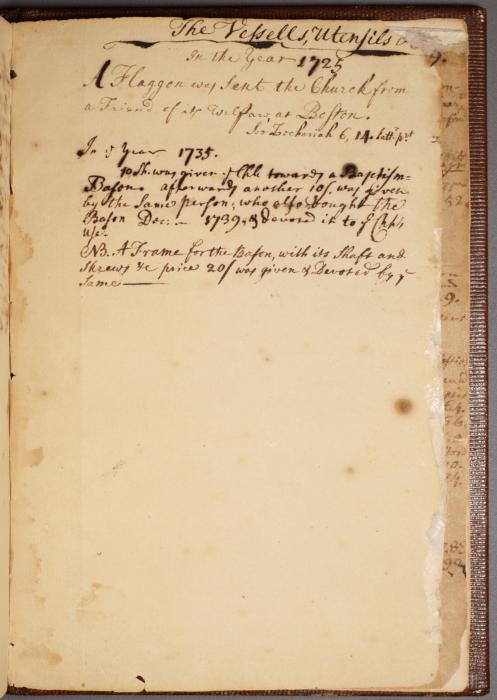 The Vessells, Utensils &
In the Year 1725
A Flaggon was Sent the Church from
a Friend of its Welfare, at Boston.
Zechariah 6, 14. lattr prt
In ye Year 1735.
10 Sh. was given ye Chh towards a Baptism=
Bason. afterwards another 10/. was given
by the Same person; who also bought the
Bason Dec: 1739, & devoted it to ye Chh's
Use.
NB. A Frame for the Bason, with its Shaft and
Skrews &c price 20/ was given & Devoted by ye
Same